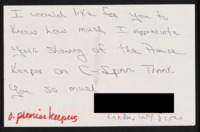 I would like for you to
know how much I appreciate
your showing of the Promise
Keeper on C-Span. Thank
You so much
a promise keepers